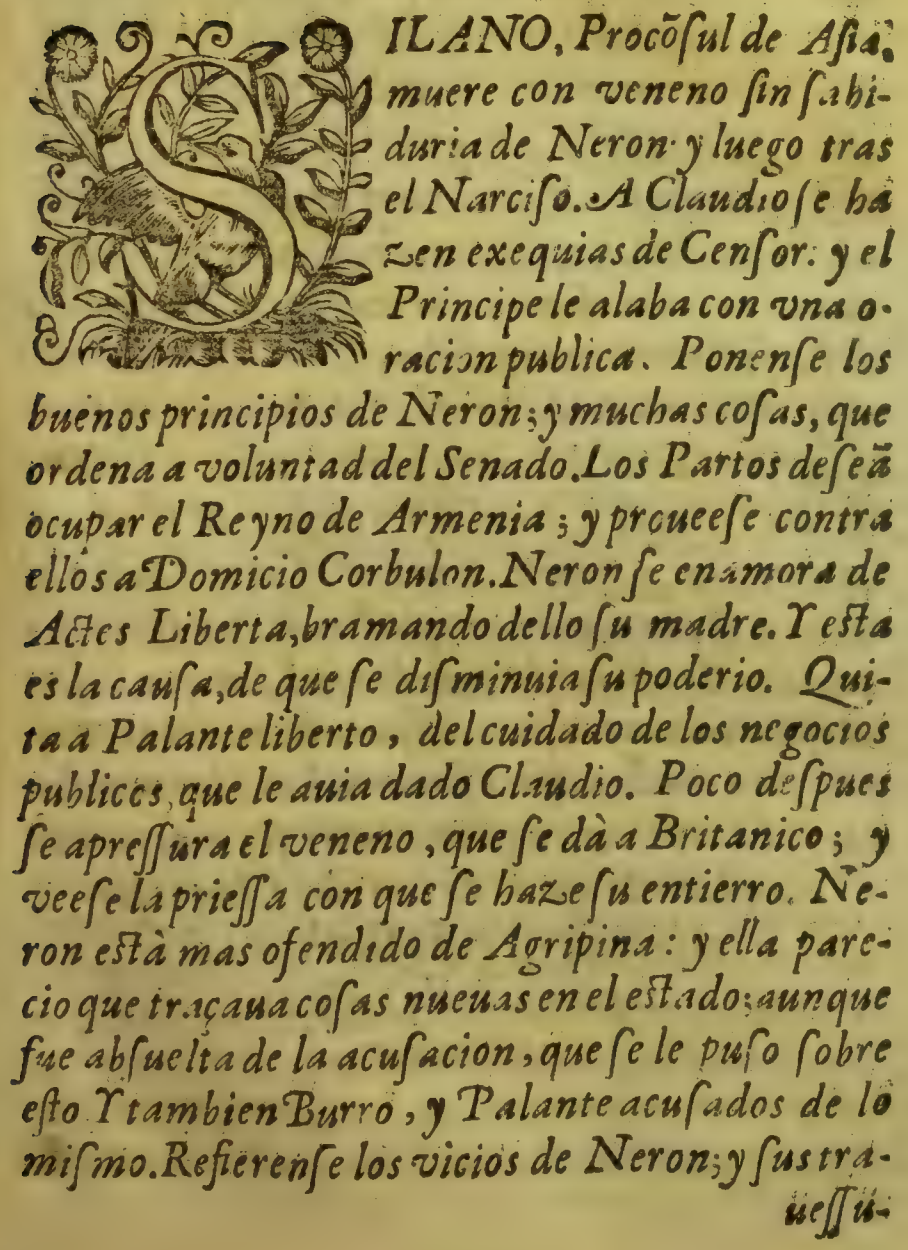 SILANO, Procõſul de Aſia,
muere con veneno ſin ſabi-
duria de Neron· y luego tras
el Narciſo. A Claudio ſe ha
zen exequias de Cenſor: y el
Principe le alaba con vna o-
racion publica. Ponenſe los
buenos principios de Neron; y muchas coſas, que
ordena a voluntad del Senado. Los Partos deſeã
ocupar el Reyno de Armenia; y proueeſe contra
ellos a Domicio Corbulon. Neron ſe enamora de
Actes Liberta, bramando dello ſu madre. Y eſta
es la cauſa, de que ſe diſminuia ſu poderio. Qui-
ta a Palante liberto, del cuidado de los negocios
publicos, que le auia dado Claudio. Poco deſpues
ſe apreſſura el veneno, que ſe dà a Britanico; y
veeſe la prieſſa con que ſe haze ſu entierro. Ne-
ron eſtà mas ofendido de Agripina: y ella pare-
cio que traçaua coſas nueuas en el eſtado; aunque
fue abſuelta de la acuſacion, que ſe le puſo ſobre
eſto Y tambien Burro, y Palante acuſados de lo
miſmo. Refierenſe los vicios de Neron; y ſus tra-
ueſſu-